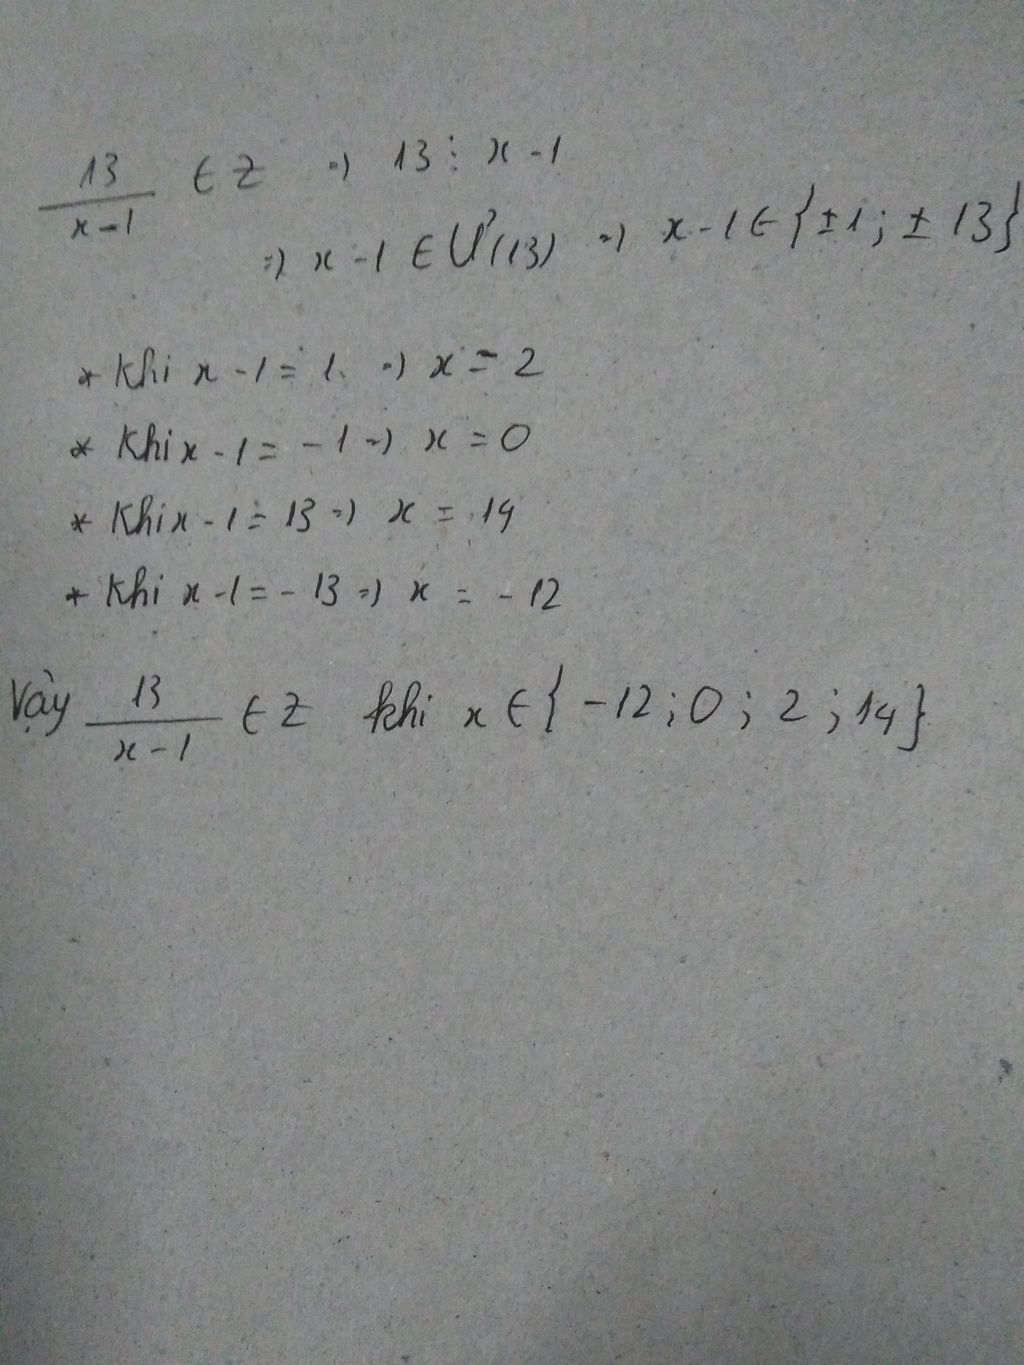 13/(x-1) ∈ Z => 13 ⋮ x - 1
=> x - 1 ∈ Ư(13) => x - 1 ∈ {±1; ±13}
* Khi x - 1 = 1 => x = 2
* Khi x - 1 = -1 => x = 0
* Khi x - 1 = 13 => x = 14
* Khi x - 1 = -13 => x = -12
Vậy 13/(x-1) ∈ Z khi x ∈ {-12; 0; 2; 14}